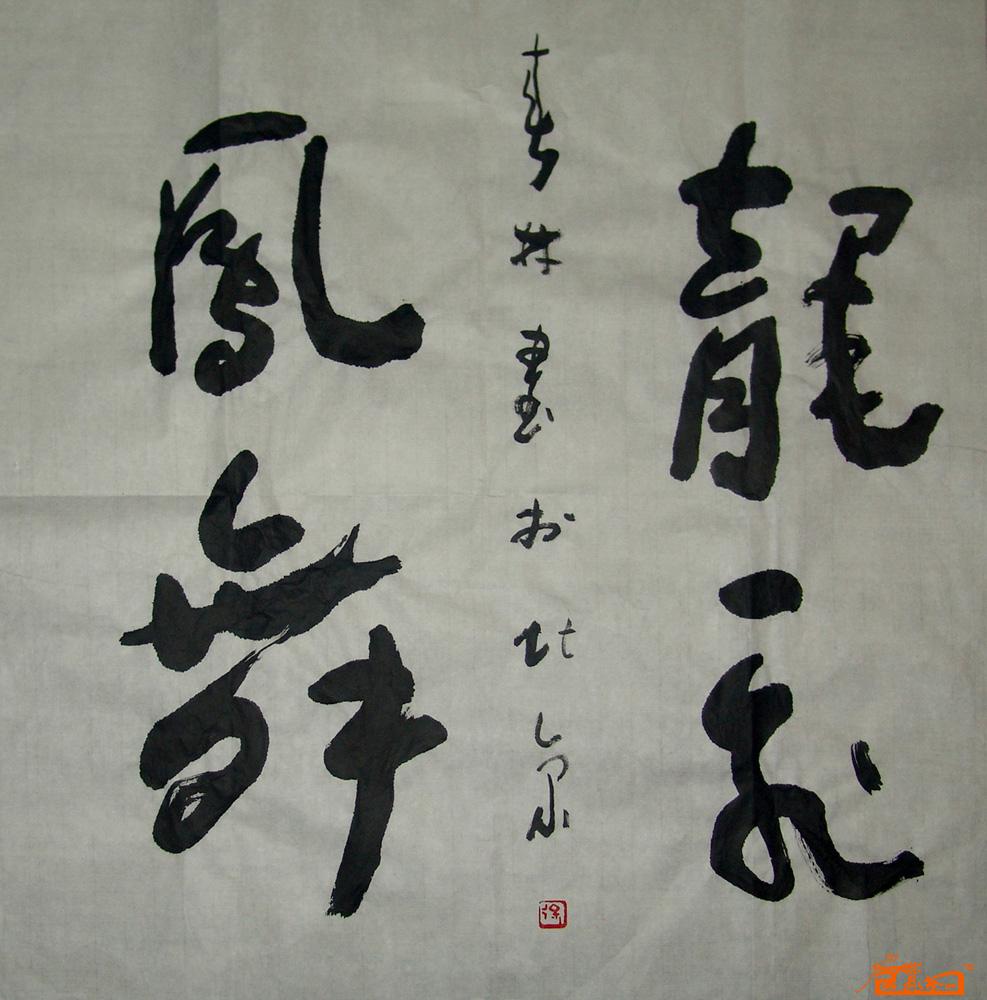 龍飛
鳳舞
春林書於北京